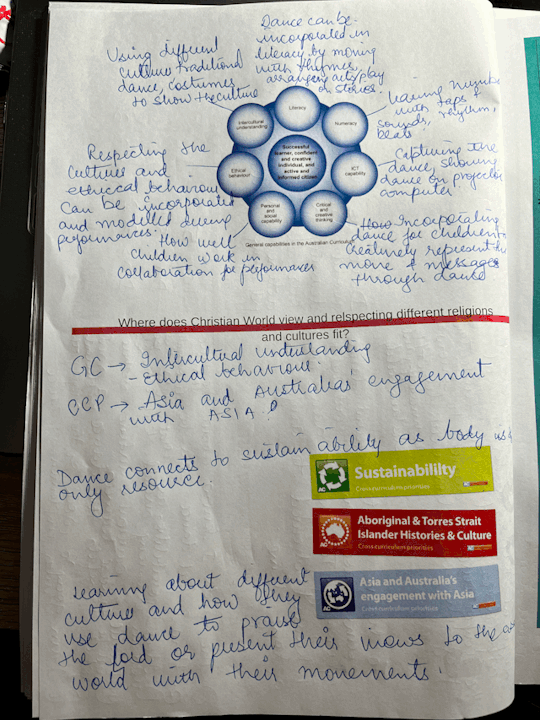 Dance can be
incorporated in
literacy by moving
with rhymes,
arranging acts/play
on stories.
Using different
culture traditional
dance, costumes
to show the culture
Learning Number
with taps &
rhythm,
sounds,
beats
Literacy
Intercultural
understanding
Numeracy
Successful
learner, confident
and creative
individual, and
active and
informed citizen
Ethical
behaviour
ICT
capability
Personal
and
social
capability
Critical
and
creative
thinking
General capabilities in the Australian Curriculum
Respecting the
culture and
ethiccal behaviour
can be incorporated
and modelled during
performances.
Capturing the
dance, showing
dance on projector
computer
How well
children work in
collaboration for performances
How Incorporating
dance for children to
creatively represent the
move & messages
through dance
Where does Christian World view and relspecting different religions
and cultures fit?
GC → Intercultural understanding
- Ethical behaviour.
CCP → Asia and Australia's engagement
with ASIA.
Dance connects to sustainability as body is
only resource.
Sustainability
Cross curriculum priorities
Aboriginal & Torres Strait
Islander Histories & Culture
Cross curriculum priorities
Asia and Australia's
engagement with Asia
Cross curriculum priorities
Learning about different
culture and how they
use dance to praise
the lord or present their views to the
world with their movements.